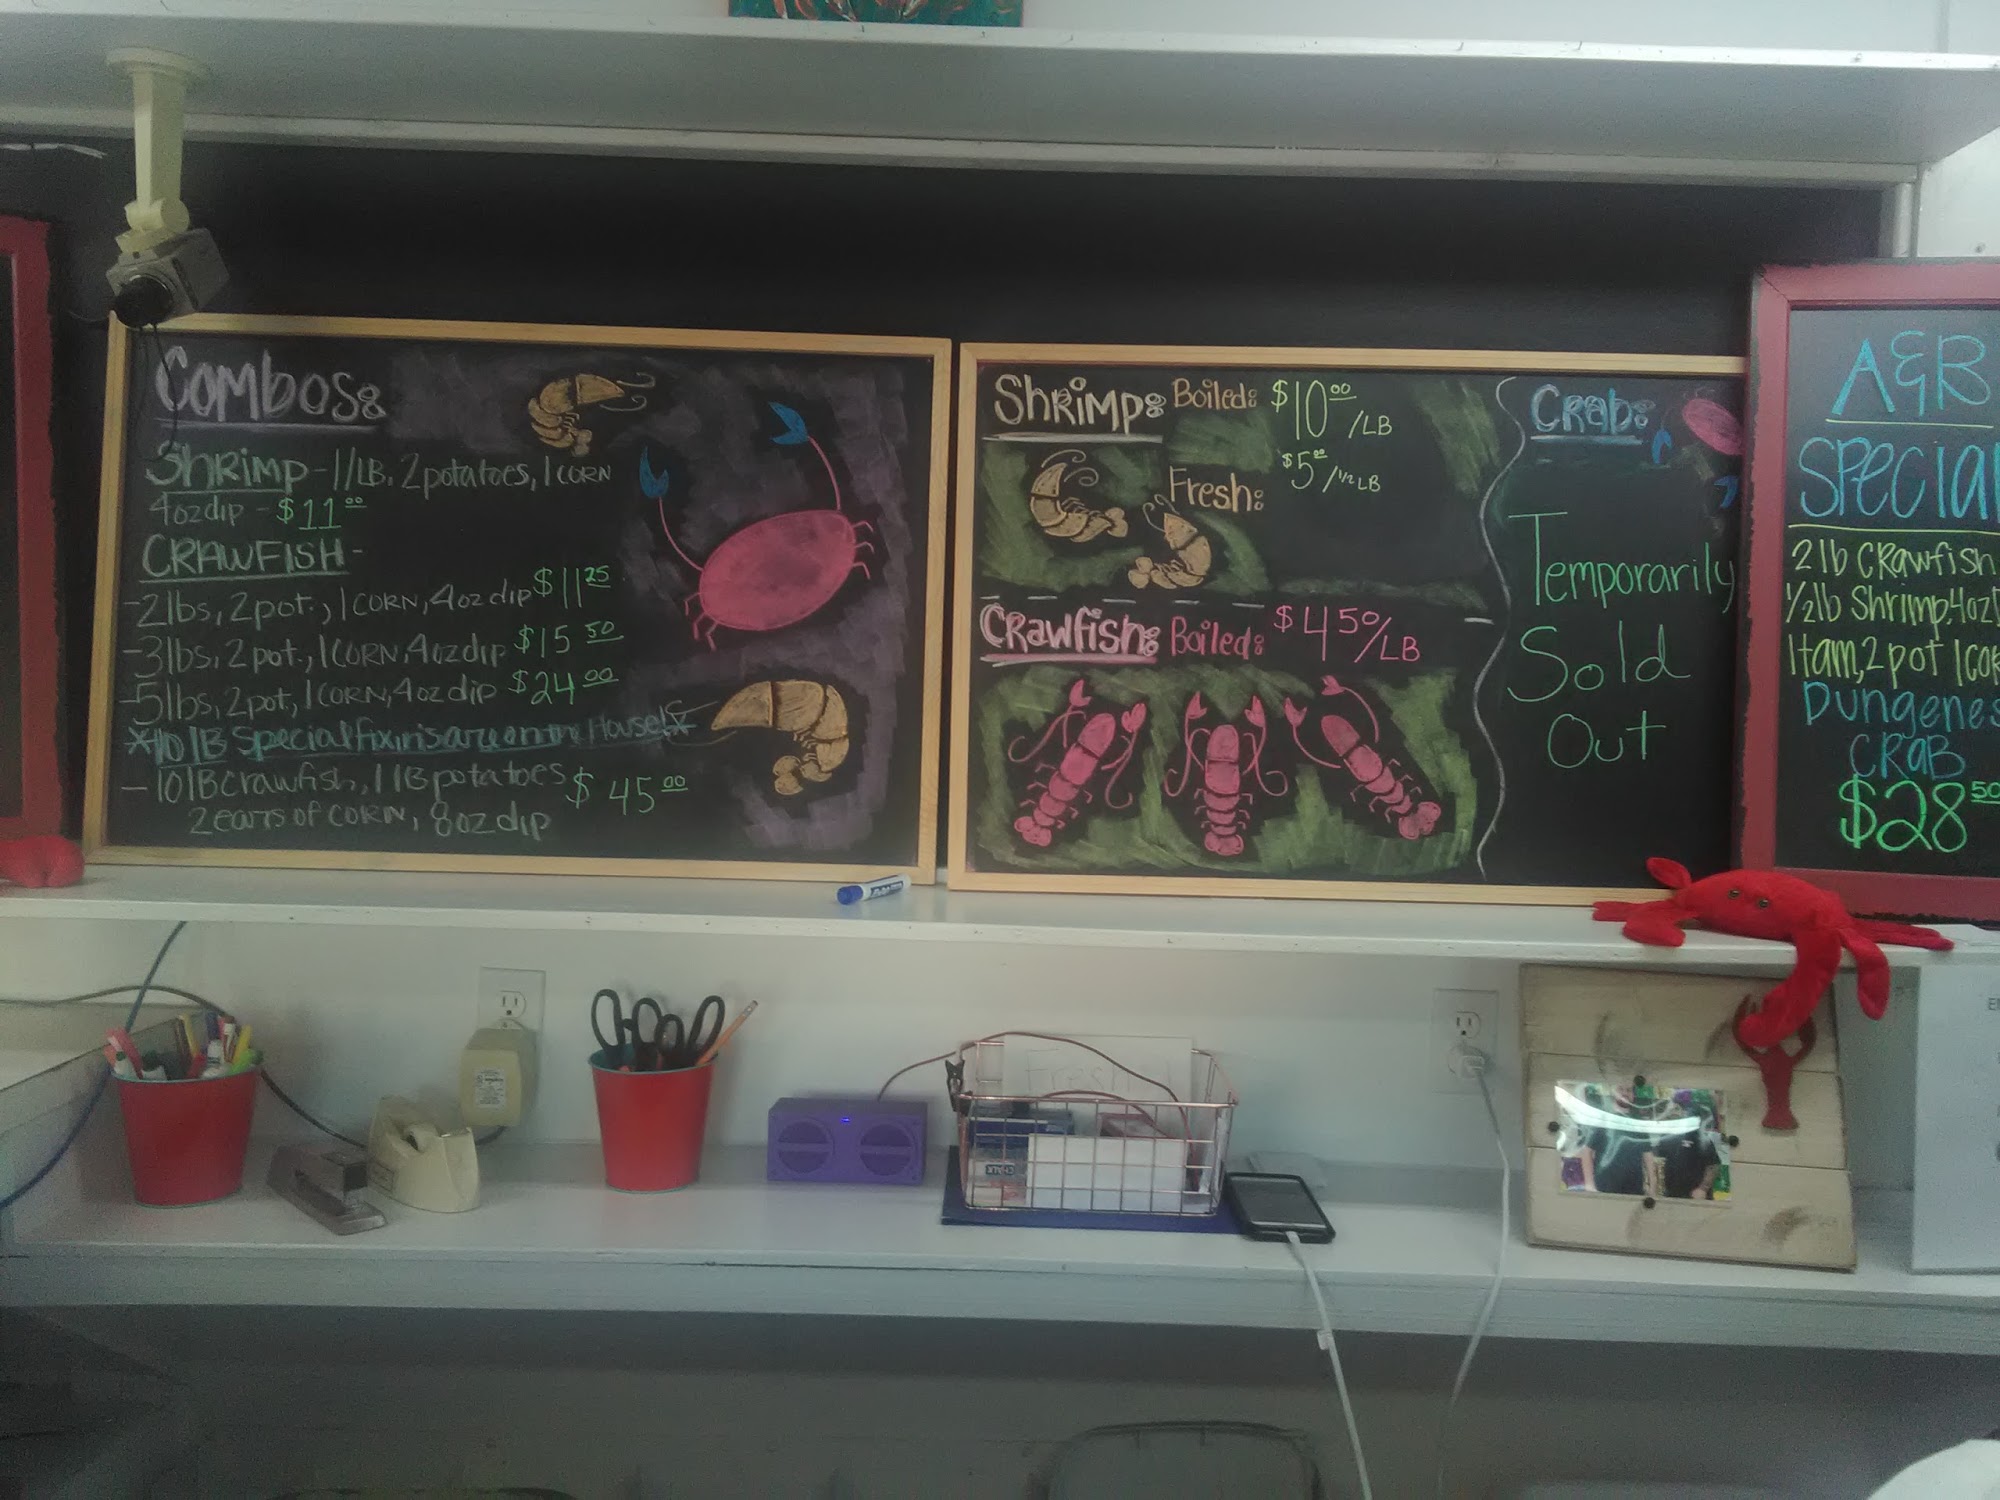 Combos:
Shrimp - 1/LB, 2 potatoes, 1 CORN
4oz dip - $11.00
CRAWFISH -
- 2lbs, 2 pot., 1 CORN, 4oz dip $11.25
- 3lbs, 2 pot., 1 CORN, 4oz dip $15.50
- 5lbs, 2 pot, 1 CORN, 4oz dip $24.00
*10 lB Special fixin's are on the House!*
- 10 lB crawfish, 1 lB potatoes $45.00
2 ears of CORN, 8oz dip
Shrimp: Boiled: $10.00/LB
$5.00/ 1/2 LB
Fresh:
Crawfish: Boiled: $4.50/LB
Crab:
Temporarily
Sold
Out
A&B
Special
2 lb Crawfish
1/2 lb Shrimp, 4oz
1 tam, 2 pot 1 cor
Dungenes
CRAB
$28.50
Fresh
CHALK